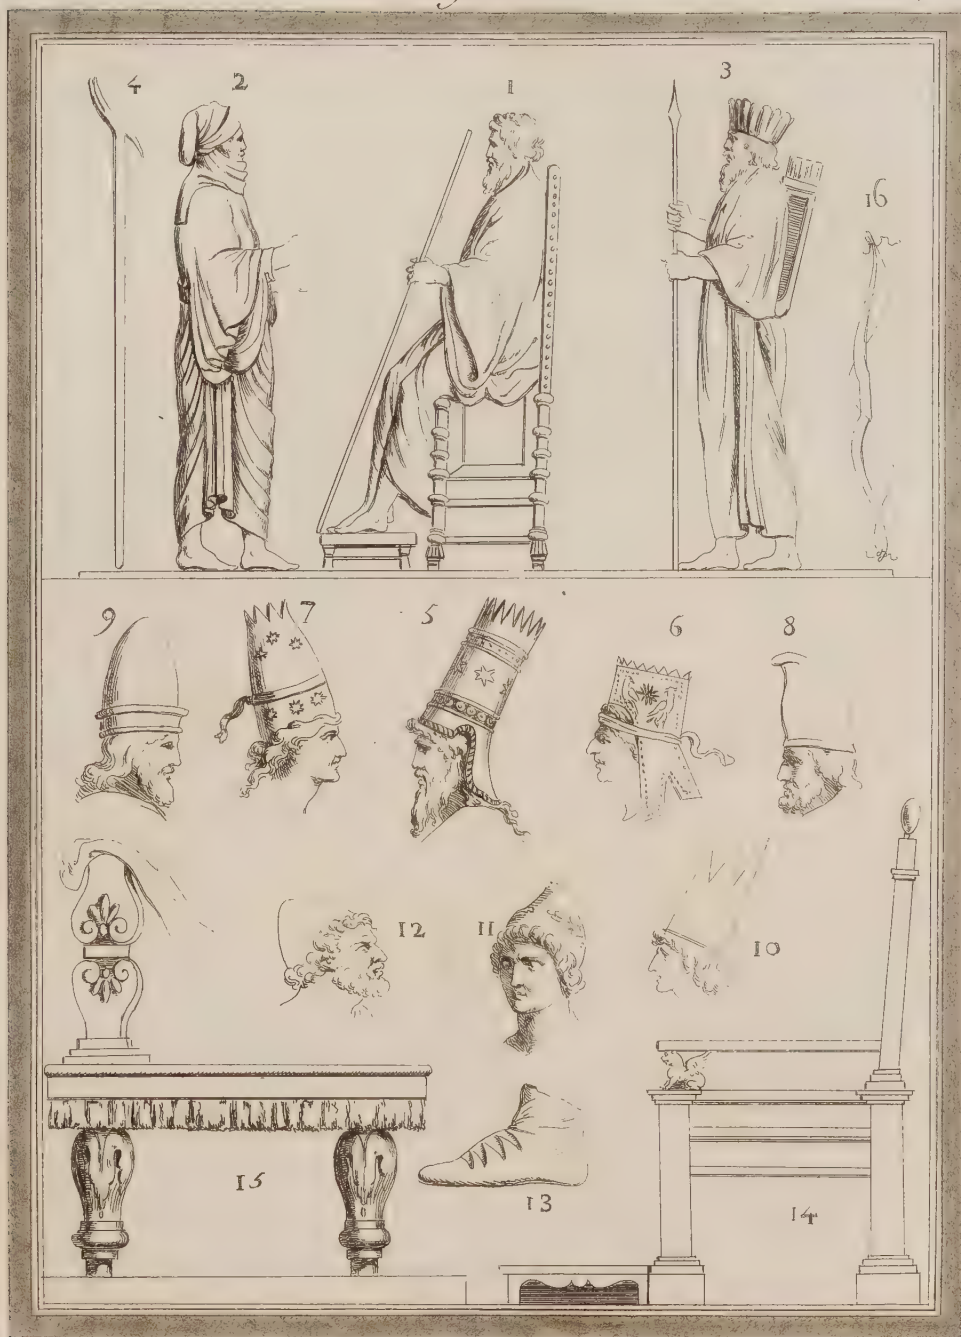 4 2 1 3
16
9 7 5 6 8
12 11 10
15 13 14